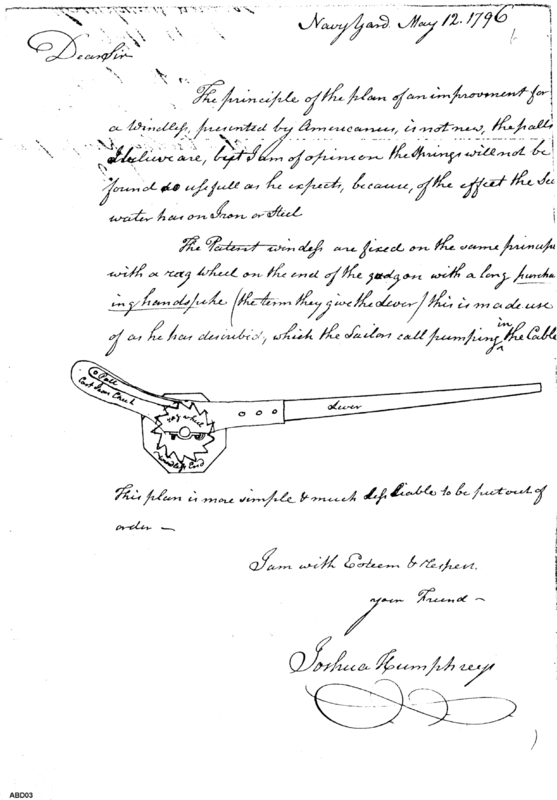 Navy Yard May 12. 1796
Dear Sir
The principle of the plan of an improvement for
a Windless, presented by Americanus, is not new, the palls
I believe are, but I am of opinion the Springs will not be
found so usefull as he expects, because, of the effect the Sea
water has on Iron or Steel
The Patent windless are fixed on the same principe
with a rag wheel on the end of the gudgon with a long purcha
ing handspike (the term they give the Lever) this is made use
of as he has described, which the Sailors call pumping in the Cable
Pall
Cast Iron Cheek
rag wheel
Windless End
Lever
This plan is more simple & much less liable to be put out of
order —
I am with Esteem & respect.
your Friend —
Joshua Humphreys
ABD03